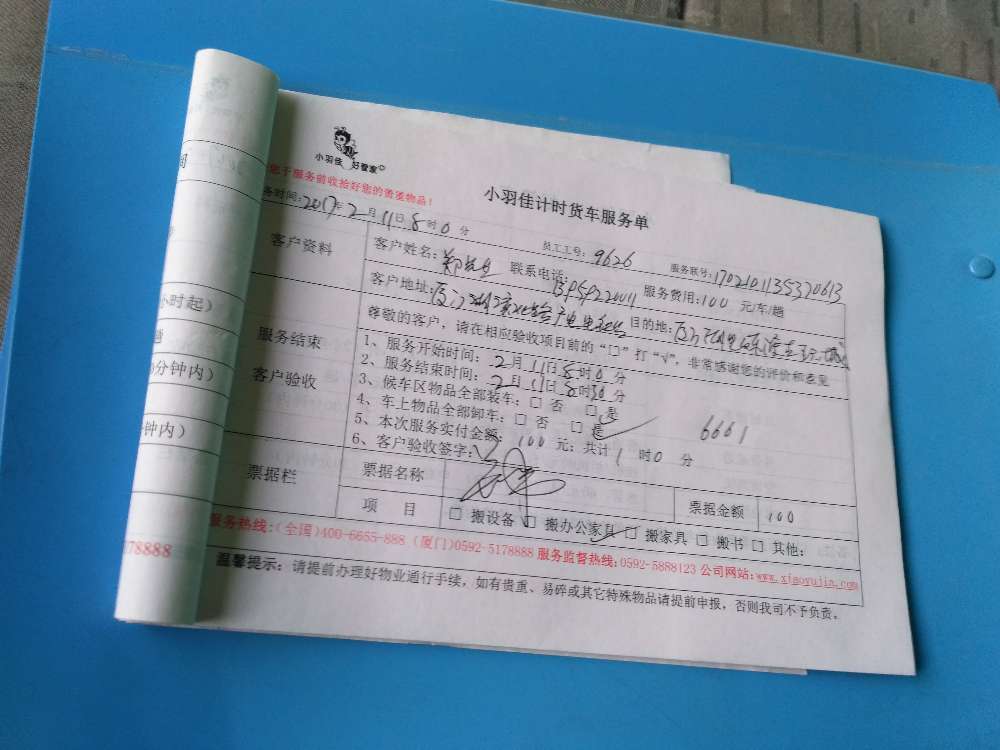 小羽佳 好管家
您于服务前收拾好您的贵重物品!
小羽佳计时货车服务单
务时间:2017年2月11日8时0分 员工工号:9626 服务联号:1702101135370613
客户资料 客户姓名:郑 联系电话: 服务费用:100 元/车/趟
客户地址:厦门 目的地:厦门
服务结束
客户验收
尊敬的客户,请在相应验收项目前的“□”打“√”,非常感谢您的评价和意见
1、服务开始时间:2月11日8时0分
2、服务结束时间:2月11日8时50分
3、候车区物品全部装车:□ 否 □ 是
4、车上物品全部卸车:□ 否 □ 是
5、本次服务实付金额:100元;共计1时0分
6661
6、客户验收签字:
票据栏 票据名称 票据金额 100
项 目 □ 搬设备 □ 搬办公家具 □ 搬家具 □ 搬书 □ 其他:
服务热线:(全国)400-6655-888 (厦门)0592-5178888 服务监督热线:0592-5888123 公司网站:www.xiaoyujia.com
温馨提示:请提前办理好物业通行手续,如有贵重、易碎或其它特殊物品请提前申报,否则我司不予负责。
小时起)
0分钟内)
钟内)
178888